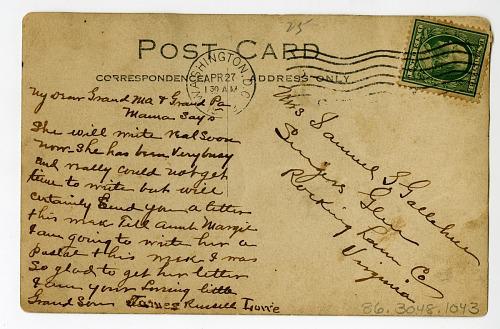 25
POST CARD
CORRESPONDENCE ADDRESS ONLY
WASHINGTON, D.C.
APR 27
1 30 AM
My dear Grand Ma & Grand Pa
Mama Says
She will write real Soon
now. She has been very busy
and really could not get
time to write but will
certainly Send you a letter
this week Tell Aunt Margie
I am going to write her a
postal this week I was
So glad to get her letter
I am your loving little
Grand Son James Russell
Mrs Samuel S Gallehue
Singers Glen
Rockingham Co
Virginia
86.3048.1043